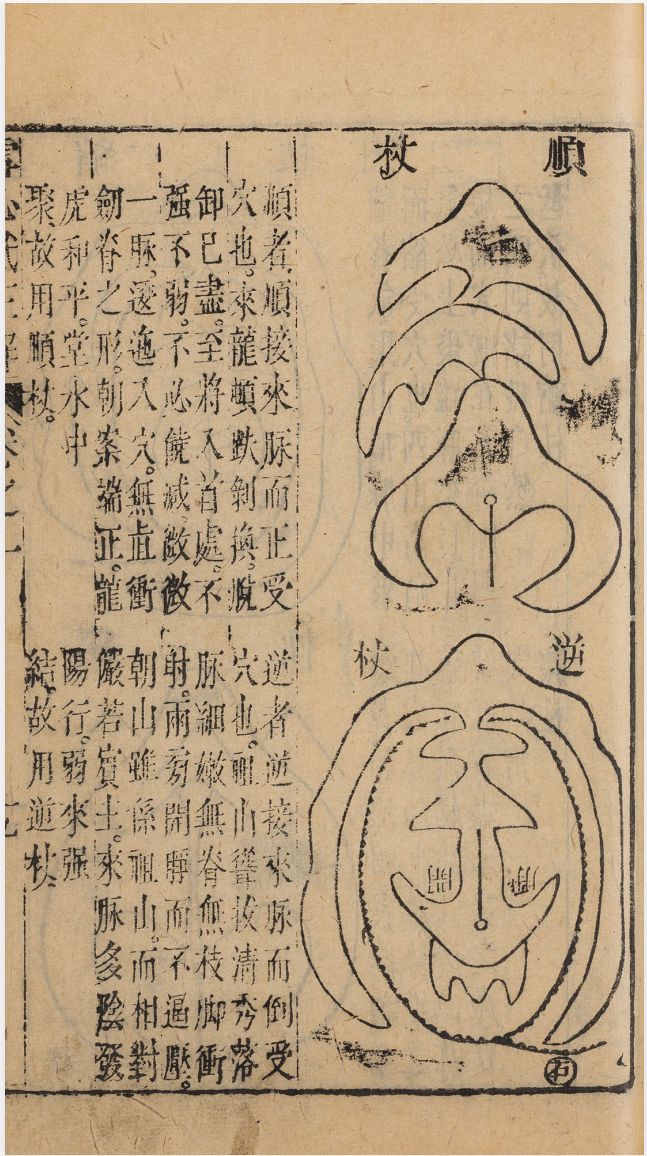 順杖
順者順接來脉而正受
穴也。來龍頓跌剝換。脫
卸已盡。至將入首處。不
强不弱。不必饒减。微微
一脉。逶迤入穴。無直衝
劍脊之形。朝案端正。龍
虎和平。堂水中
聚故用順杖。
逆杖
開
睜
逆者逆接來脉而倒受
穴也。祖山聳拔清秀落
脉細嫩無脊無枝脚衝
射。兩旁開睜而不逼壓。
朝山雖係祖山。而相對
儼若賓主。來脉多陰發
陽行。弱來强
結。故用逆杖。